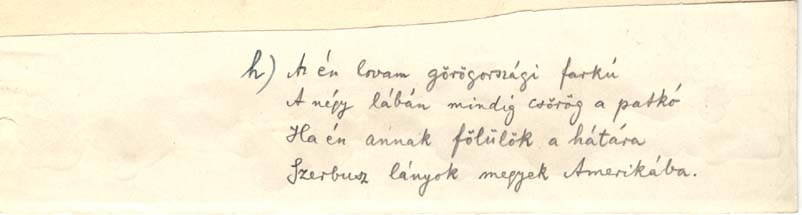 h) Az én lovam görögországi farkú
A négy lábán mindig csörög a patkó
Ha én annak fölülök a hátára
Szerbusz lányok megyek Amerikába.